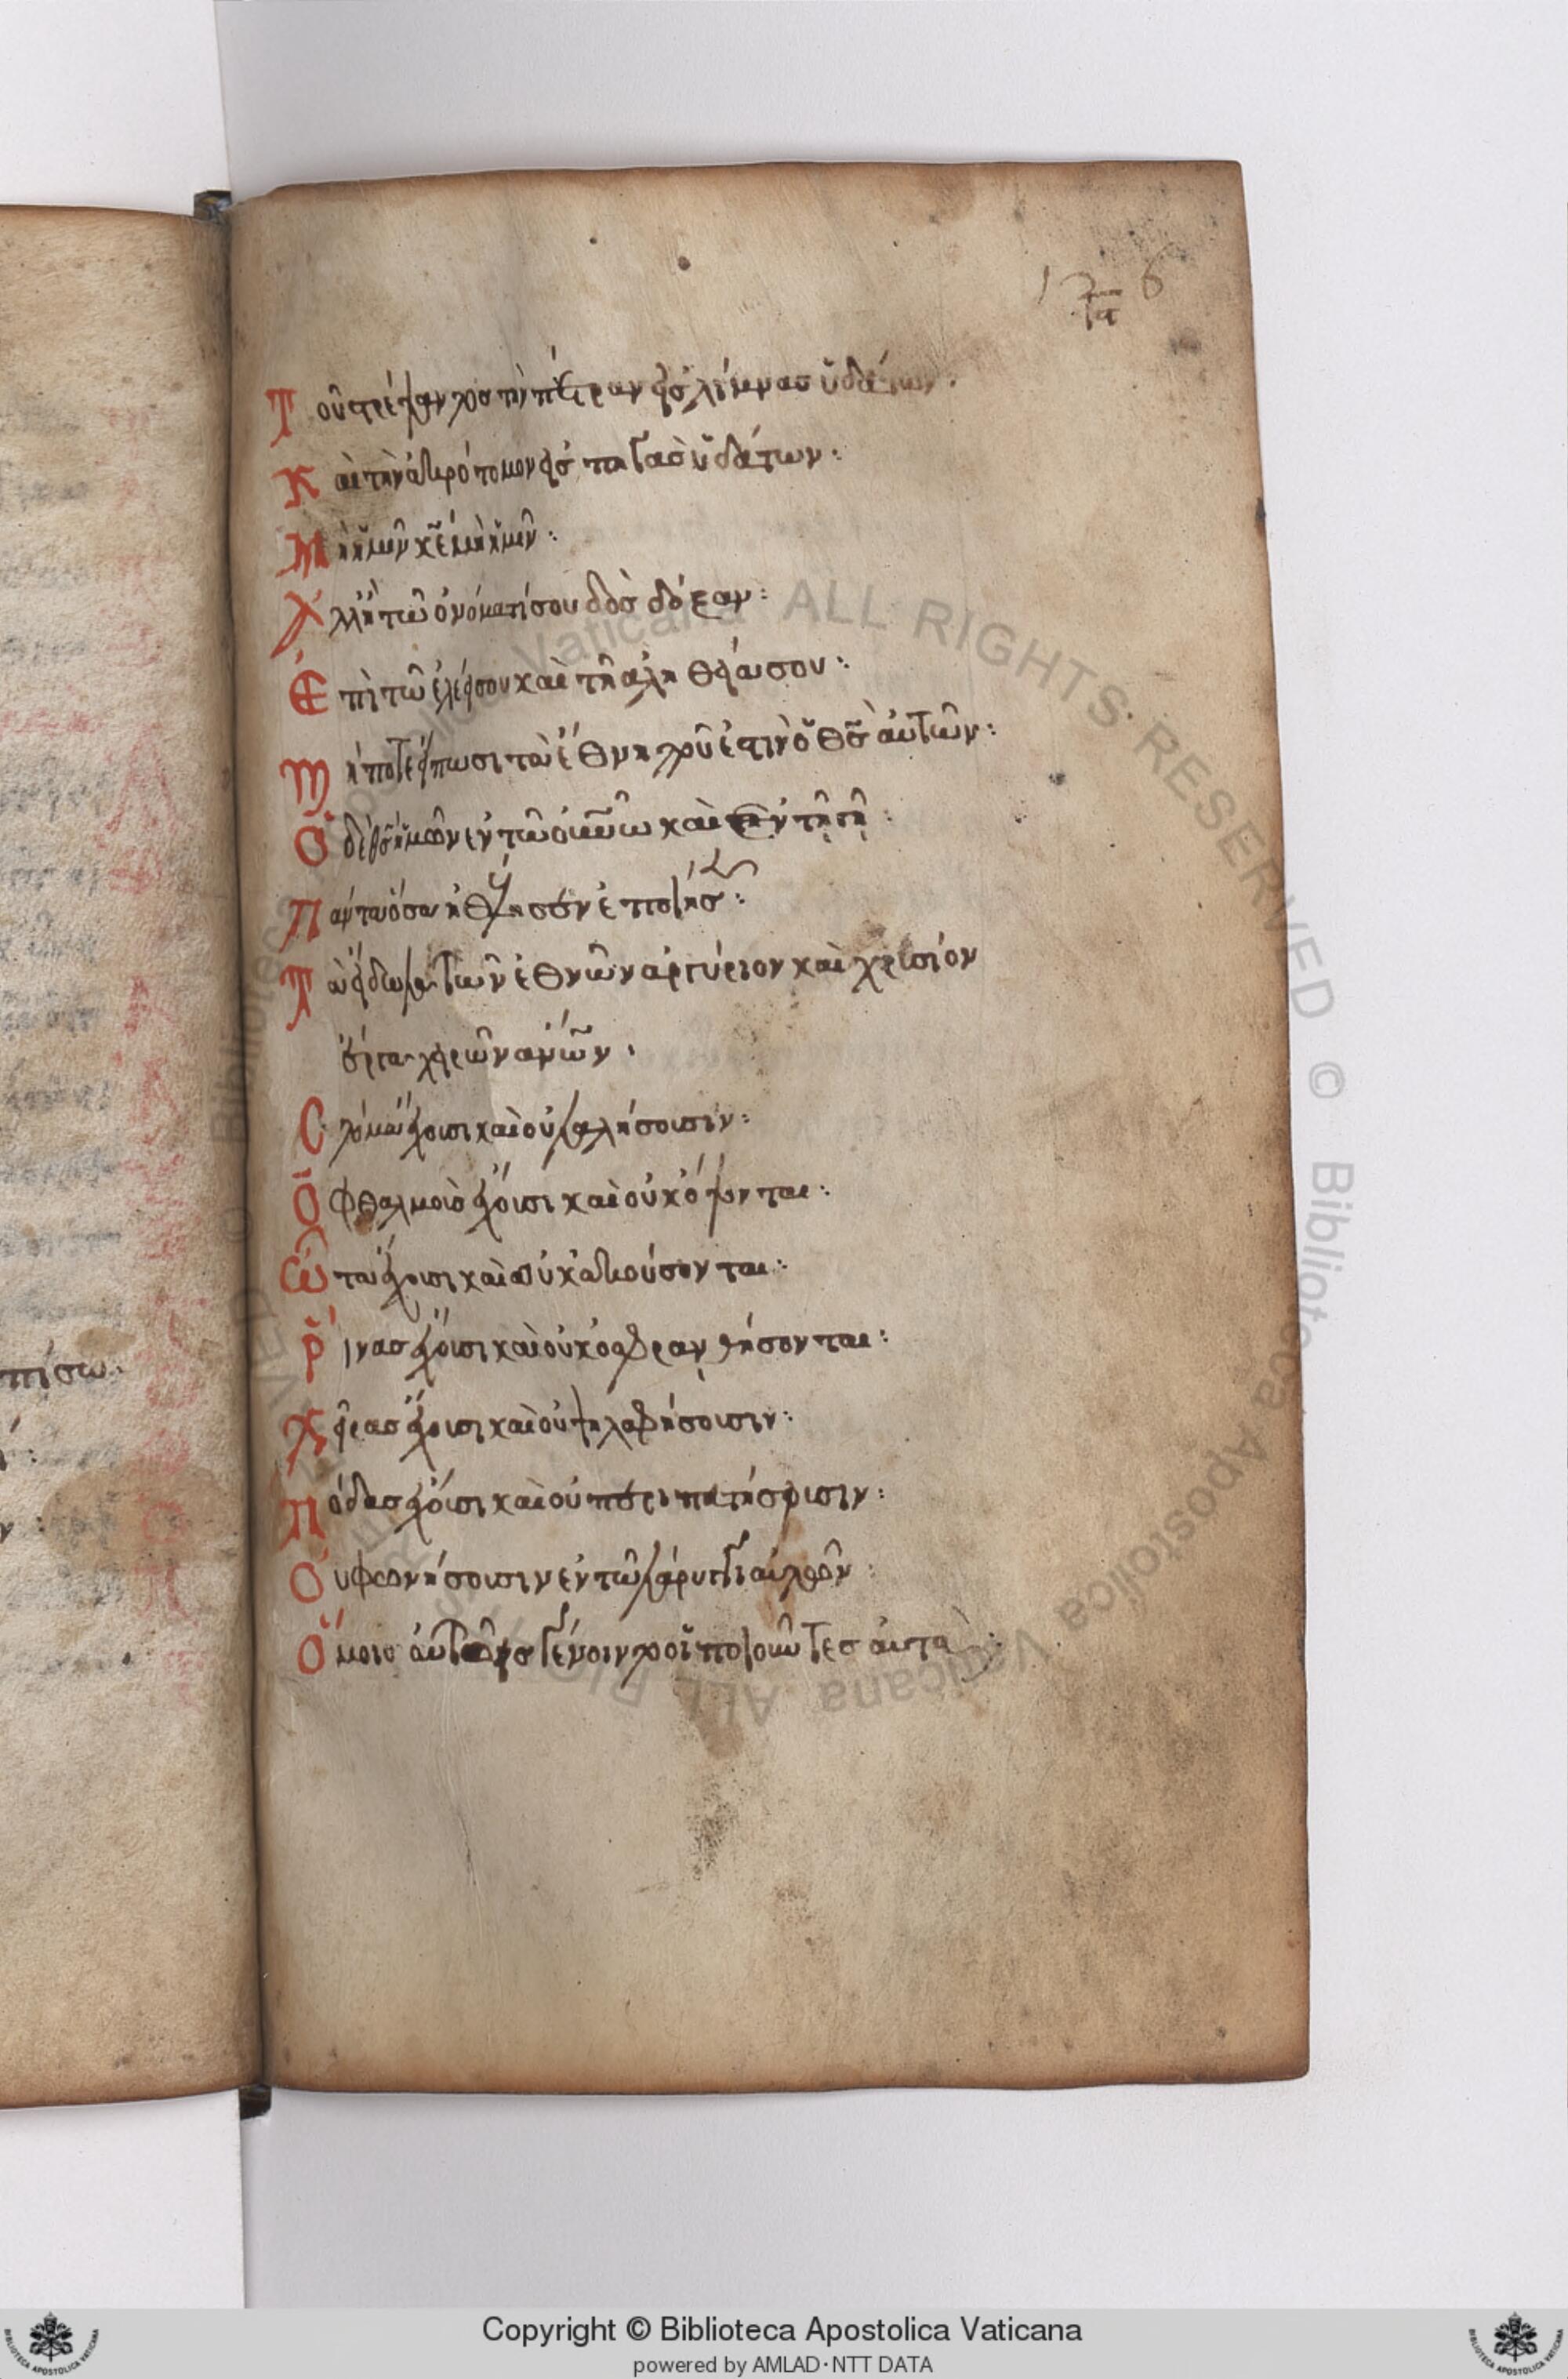 126
ια
Τοῦ στρέψαντος τὴν πέτραν εἰς λίμνας ὑδάτων.
Καὶ τὴν ἀκρότομον εἰς πηγὰς ὑδάτων:
Μὴ ἡμῖν κε μὴ ἡμῖν:
Ἀλλ' ἢ τῶ ὀνόματί σου δὸς δόξαν:
Ἐπὶ τῶ ἐλέει σου καὶ τῆ ἀληθεία σου:
Μήποτε εἴπωσι τὰ ἔθνη ποῦ ἐστὶν ὁ θς αὐτῶν:
Ὁ δὲ θς ἡμῶν ἐν τῶ οὐνῶ καὶ ἐν τῆ γῆ:
Πάντα ὅσα ἠθέλησεν ἐποίησεν:
Τὰ εἴδωλα τῶν ἐθνῶν ἀργύριον καὶ χρυσίον
ἔργα χειρῶν ἀνῶν.
Στόμα ἔχουσι καὶ οὐ λαλήσουσιν:
Ὀφθαλμοὺς ἔχουσι καὶ οὐκ ὄψονται:
Ὦτα ἔχουσι καὶ οὐκ ἀκούσονται:
Ῥίνας ἔχουσι καὶ οὐκ ὀσφρανθήσονται:
Χεῖρας ἔχουσι καὶ οὐ ψηλαφήσουσιν:
Πόδας ἔχουσι καὶ οὐ περιπατήσουσιν:
Οὐ φωνήσουσιν ἐν τῶ λάρυγγι αὐτῶν:
Ὅμοιοι αὐτοῖς γένοιντο οἱ ποιοῦντες αὐτὰ:
πίσω:
© Biblioteca Apostolica Vaticana ALL RIGHTS RESERVED © Biblioteca Apostolica Vaticana ALL RIGHTS RESERVED
Copyright © Biblioteca Apostolica Vaticana
powered by AMLAD・NTT DATA